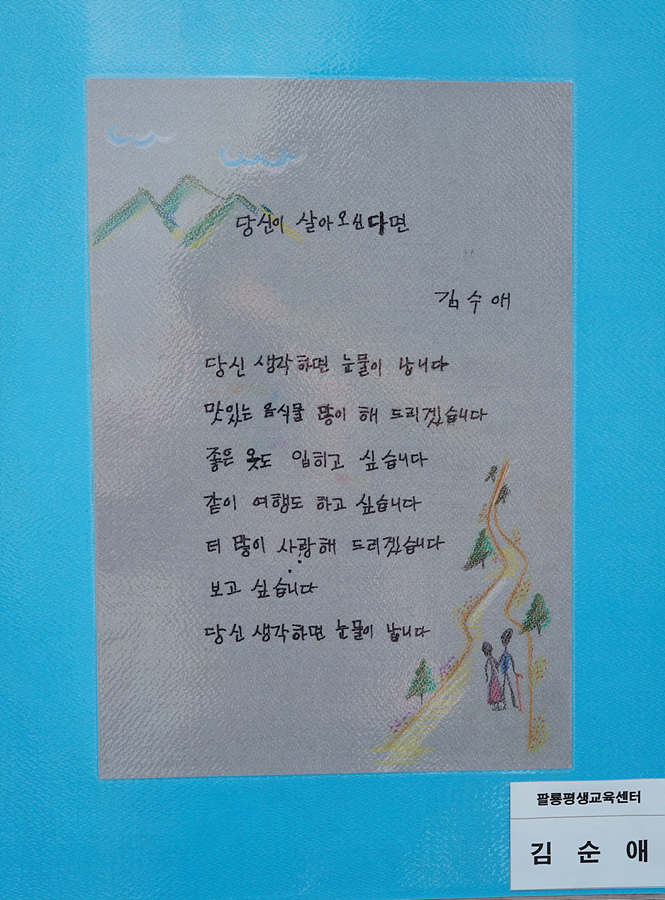 당신이 살아오신다면
김수애
당신 생각하면 눈물이 납니다
맛있는 음식물 많이 해 드리겠습니다
좋은 옷도 입히고 싶습니다
같이 여행도 하고 싶습니다
더 많이 사랑해 드리겠습니다
보고 싶습니다
당신 생각하면 눈물이 납니다
팔룡평생교육센터
김 순 애